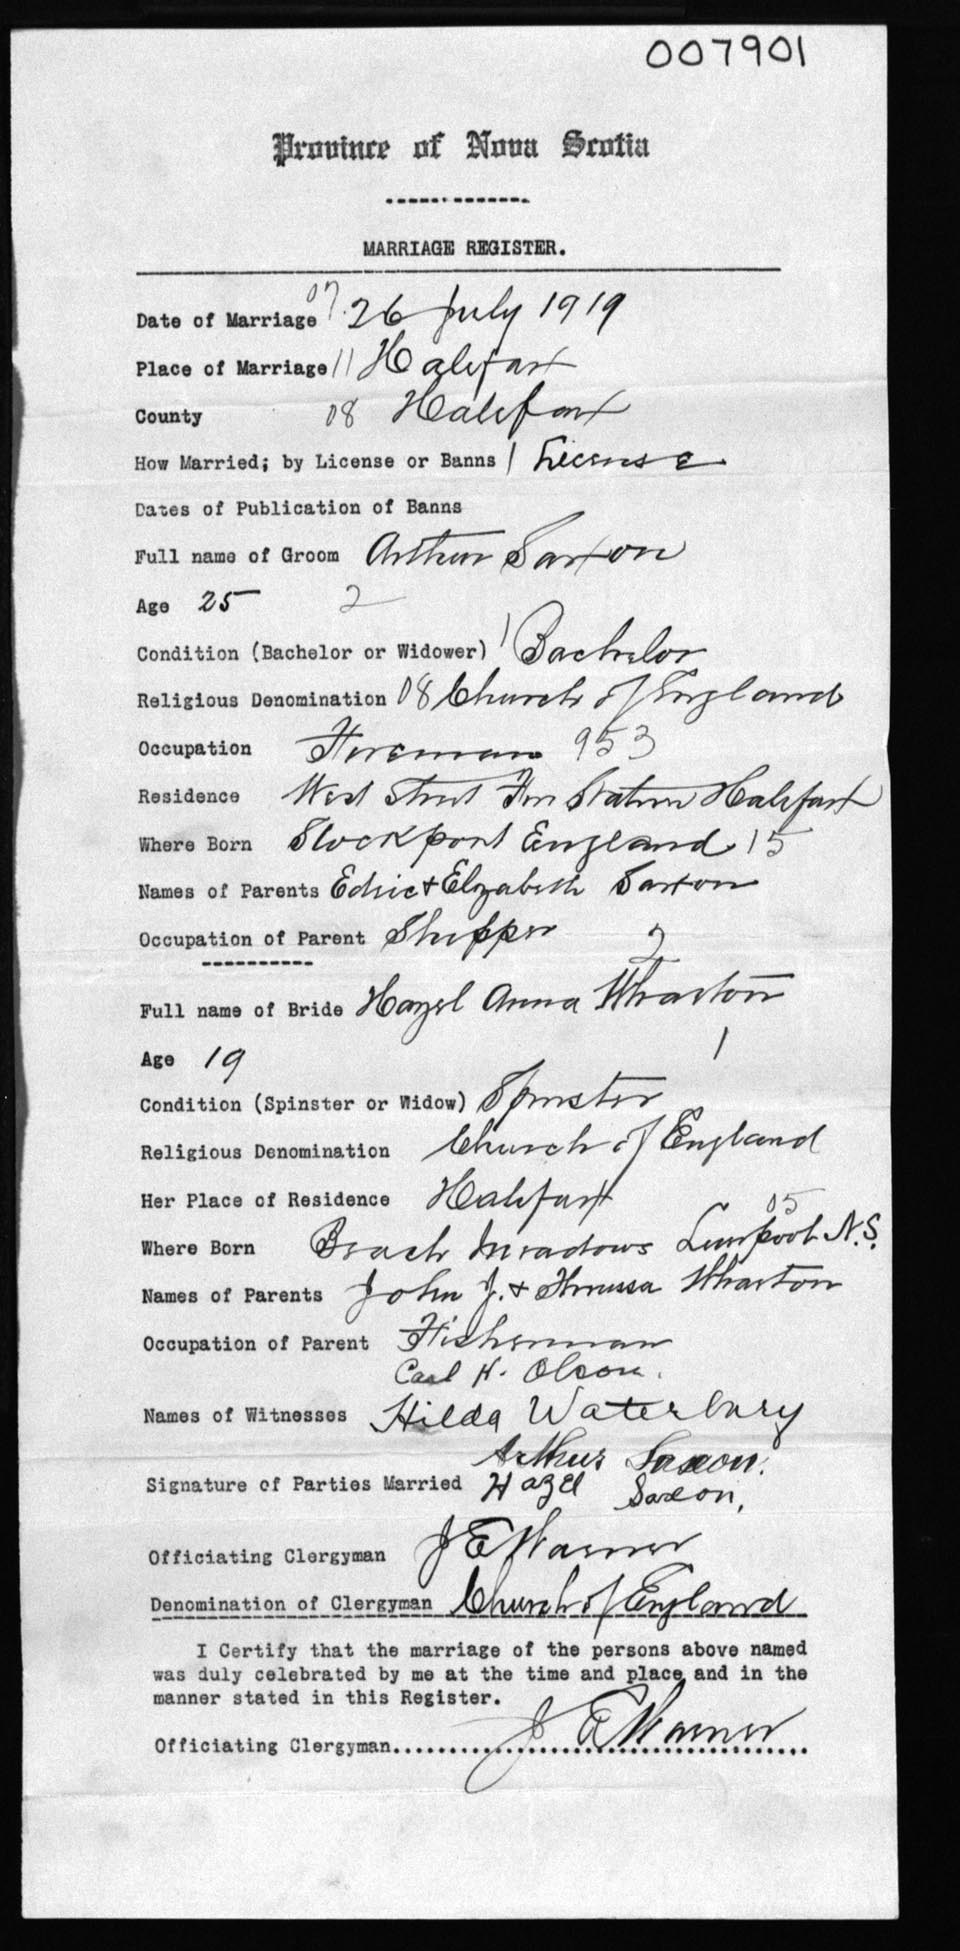 007901
Province of Nova Scotia
MARRIAGE REGISTER.
Date of Marriage 07. 26 July 1919
Place of Marriage 11 Halifax
County 08 Halifax
How Married; by License or Banns 1 License
Dates of Publication of Banns
Full name of Groom Arthur Saxton
Age 25 2
Condition (Bachelor or Widower) 1 Bachelor
Religious Denomination 08 Church of England
Occupation Fireman 953
Residence West Street Fire Station Halifax
Where Born Stockport England 15
Names of Parents Edric + Elizabeth Saxton
Occupation of Parent Shipper 2
Full name of Bride Hazel Anna Wharton
Age 19 1
Condition (Spinster or Widow) Spinster
Religious Denomination Church of England
Her Place of Residence Halifax
05
Where Born Beach Meadows Liverpool N.S.
Names of Parents John J. + Wharton
Occupation of Parent Fisherman
Carl H. Olson.
Names of Witnesses Hilda Waterbury
Arthur Saxon.
Signature of Parties Married Hazel Saxon.
Officiating Clergyman J E Warner
Denomination of Clergyman Church of England
I Certify that the marriage of the persons above named
was duly celebrated by me at the time and place and in the
manner stated in this Register.
Officiating Clergyman J E Warner